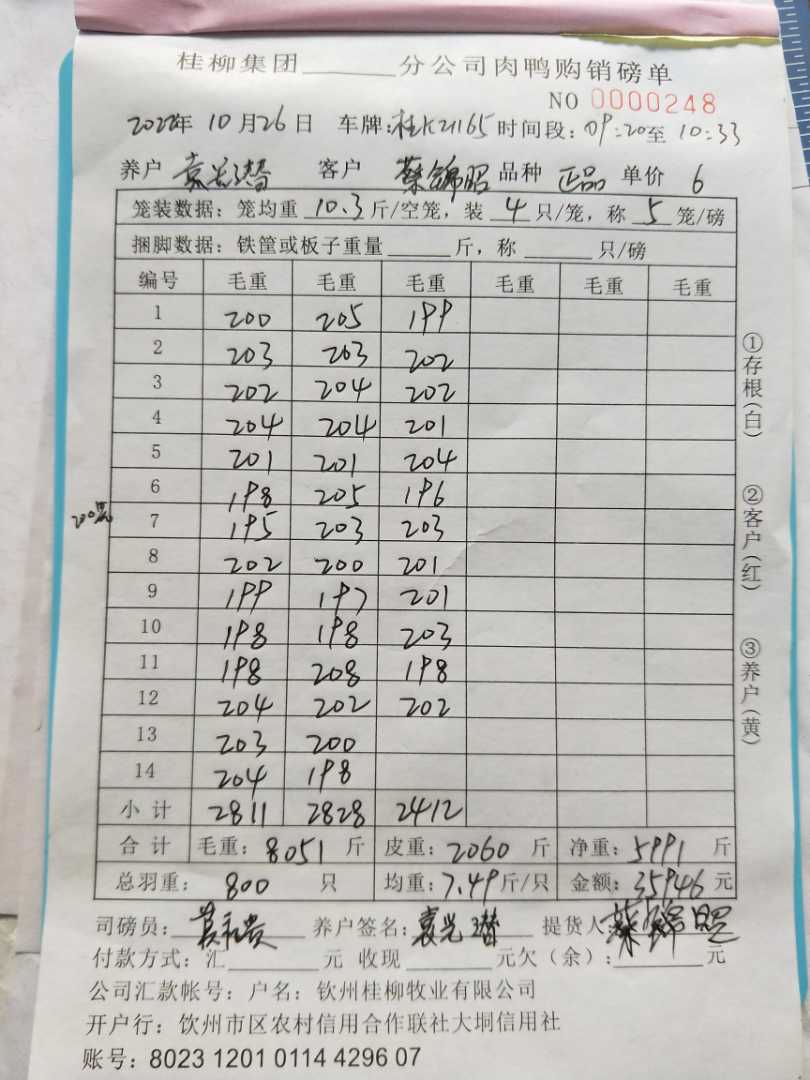 桂柳集团______分公司肉鸭购销磅单
NO 0000248
2022年 10月26日 车牌:桂K21165 时间段:09:20至 10:33
养户 袁光潜 客户 蔡锦昭 品种 正品 单价 6
笼装数据：笼均重 10.3 斤/空笼，装 4 只/笼，称 5 笼/磅
捆脚数据：铁筐或板子重量______斤，称______只/磅
编号 毛重 毛重 毛重 毛重 毛重 毛重
1 200 205 199
2 203 203 202
3 202 204 202
4 204 204 201
5 201 201 204
6 198 205 196
200笼
7 195 203 203
8 202 200 201
9 199 197 201
10 198 198 203
11 198 208 198
12 204 202 202
13 203 200
14 204 198
小计 2811 2828 2412
合计 毛重：8051 斤 皮重：2060 斤 净重：5991 斤
总羽重： 800 只 均重：7.49斤/只 金额：35946 元
司磅员: 养户签名: 袁光潜 提货人 蔡锦昭
付款方式：汇______元 收现______元欠（余）:______元
公司汇款帐号：户名：钦州桂柳牧业有限公司
开户行：饮州市区农村信用合作联社大垌信用社
账号：8023 1201 0114 4296 07
①存根(白)
②客户(红)
③养户(黄)